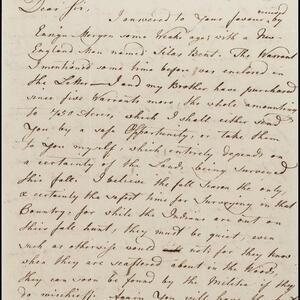 Dear Sir,
I answered to Your favour by
Ensign Morgan some Weeks ages with a New
England Man named Silas Bent. The Warrant
I mentioned some time before was enclosed in
the Letter I and my Brother have purchased
since five Warrants more, the whole amounting
to 750 Acres, which I shall either send
You by a safe Opportunity, or take them
to You myself, which entirely depends on
a certainty of the Lands being Surveyed
this fall. I believe the fall Season the only,
& certainly the safest time for Surveying in that
Country; for while the Indians are out on
their fall hunt, they must be quiet, even
such as otherwise would not, for they know
when they are scattered about in the Woods,
they can soon be found by the Militia if they
do mischief. You will have